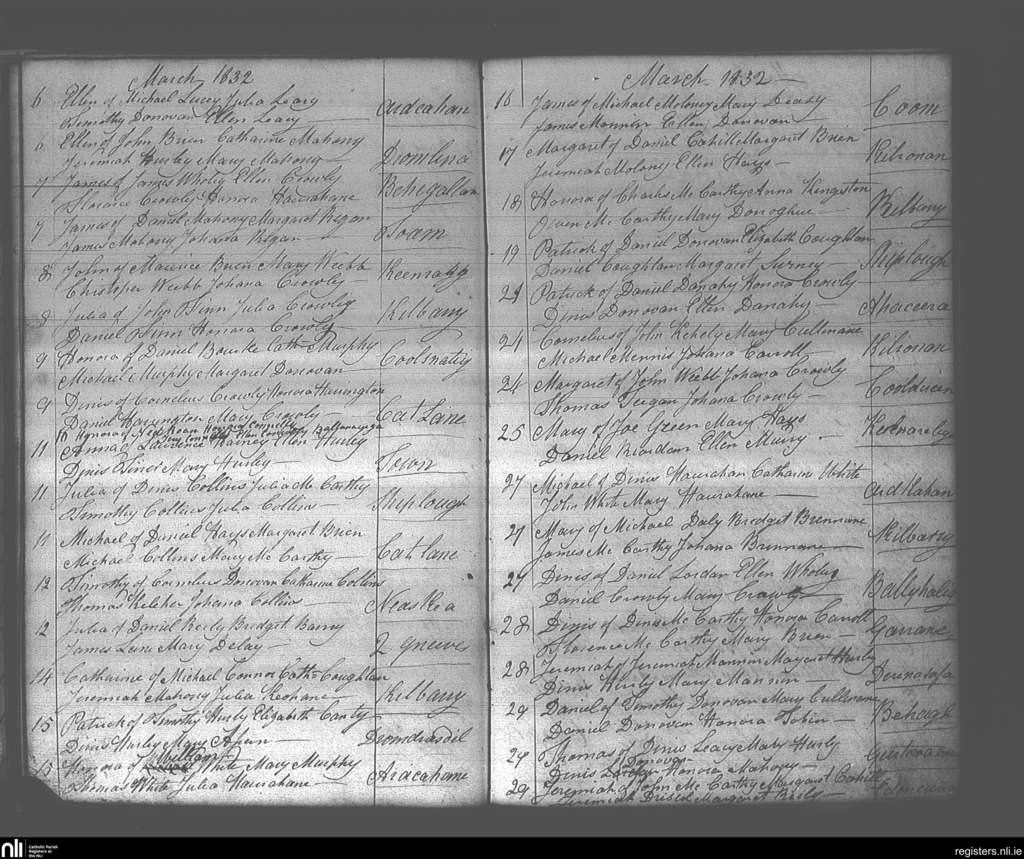 March 1832
6 Ellen of Michael Lucey Julia Leary
Timothy Donovan Ellen Leary Ardcahan
6 Ellen of John Brien Catharine Mahony
Jeremiah Hurley Mary Mahony
7 James of James Wholey Ellen Crowly Behegallan
Florence Crowly Honora Haurahane
7 James of Daniel Mahony Margaret Regan
James Mahony Johana Regan Toam
8 John of Maurice Brien Mary Webb
Christoper Webb Johana Crowly
8 Julia of John Flinn Julia Crowley Kilbarry
Daniel Honora Crowly
9 Honora of Daniel Bourke Cath. Murphy
Michael Murphy Margaret Donovan
9 Denis of Cornelius Crowly Honora Harrington
Daniel Harrington Mary Crowly Cat Lane
10 Honora of Honora Connolly
11 Anna of Lawrence Ellen Hurley
Denis Mary Hurley Town
11 Julia of Denis Collins Julia Mc Carthy
Timothy Collins Julia Collins Shiplough
11 Michael of Daniel Hays Margaret Brien
Michael Collins Mary Mc Carthy Cat Lane
12 Timothy of Cornelius Donovan Catharine Collins
Thomas Keleher Johana Collins Neaskea
12 Julia of Daniel Reily Bridget Barry
James Mary Delay
14 Catharine of Michael Connor Cath. Coughlan
Jeremiah Mahony Julia Keohane Kilbarry
15 Patrick of Timothy Hurly Elizabeth Canty
Denis Hurley Mary Ahern
15 Honora of William White Mary Murphy
Thomas White Julia Haurahane Ardcahane
March 1832
16 James of Michael Molony Mary Deasy
James Mannin Ellen Donovan Coom
17 Margaret of Daniel Cahill Margaret Brien
Jeremiah Molany Ellen Hays Kilronan
18 Honora of Charles Mc Carthy Anna Kingston
Owen Mc Carthy Mary Donoghue Kilbarry
19 Patrick of Daniel Donovan Elizabeth Coughlan
Daniel Coughlan Margaret Shiplough
21 Patrick of Daniel Danahy Honora Crowly
Denis Donovan Ellen Danahy Ahaceera
21 Cornelius of John Kehely Mary Cullinane
Michael Mennis Johana Carroll Kilronan
24 Margaret of John Webb Johana Crowly
Thomas Johana Crowly
25 Mary of Joe Green Mary Hays
Daniel Riordan Ellen Murry
27 Michael of Denis Haurahan Catharine White
John White Mary Haurahane Ardkahan
27 Mary of Michael Daly Bridget Brennane
James Mc Carthy Johana Brennane Kilbarry
27 Denis of Daniel Lordan Ellen Wholey
Daniel Crowly Mary Crowly
28 Denis of Denis Mc Carthy Honora Carroll
Florence Mc Carthy Mary Brien Garrane
28 Jeremiah of Jeremiah Mannin Margaret Hurly
Denis Hurly Mary Mannin
29 Daniel of Timothy Donovan Mary Cullinane
Daniel Donovan Honora Tobin Behagh
29 Thomas of Denis Leary Mary Hurly
Denis Donovan Honora Mahony
29 Jeremiah of John Mc Carthy Margaret Cahill
Jeremiah Driscol Margaret
nli
Catholic Parish
Registers at
the NLI
registers.nli.ie